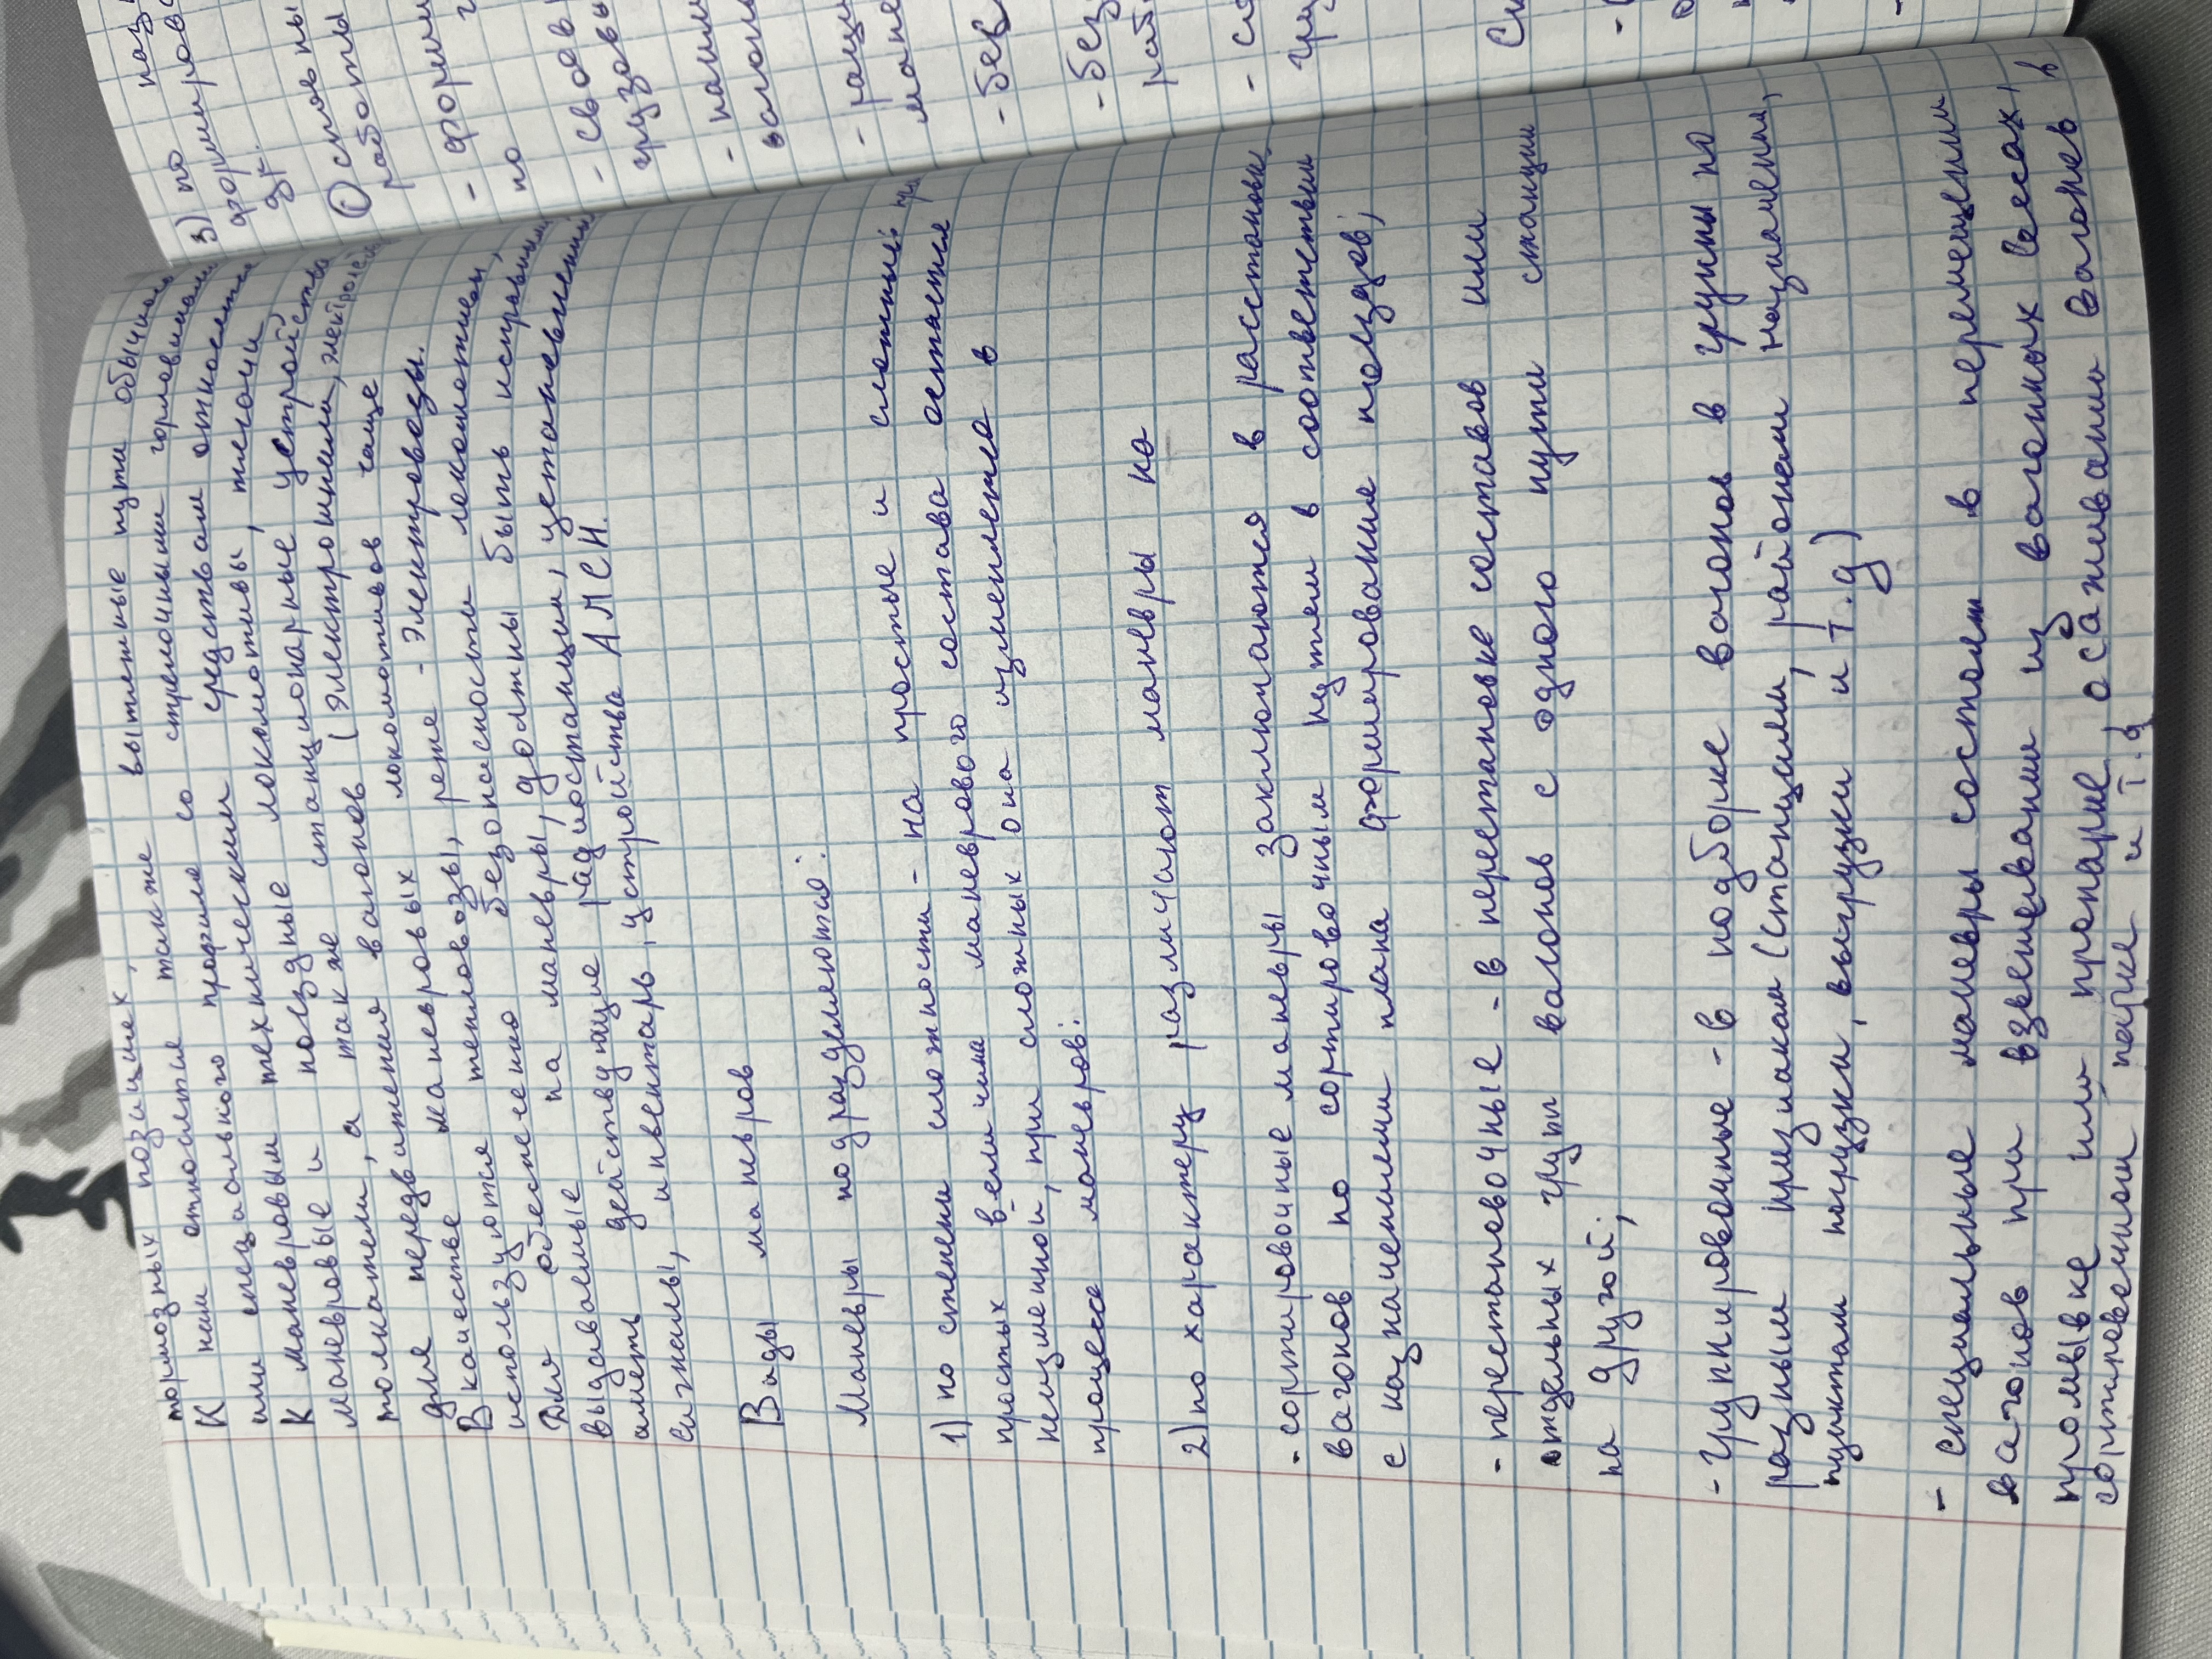 тормозных позициях, вытяжные пути обычного
К ним относятся также со стрелочными горловинами
или специального профиля средствам относятся
К маневровым техническим локомотивы, тягачи,
маневровые и поездные стационарные устройства
толкатели, а также (электрошпили, электросп
для передвижения вагонов локомотивов чаще
В качестве маневровых реже - электровозы.
используются тепловозы, локомотивы,
Для обеспечению безопасности быть исправными
выдаваемые на маневры, должны установленный
иметь действующие радиостанции,
сигналы, инвентарь, устройства АЛСН.
Виды маневров
Маневры подразделяются:
1) по степени сложности - на простые и сложные: при
простых величина маневрового состава остается
неизменной, при сложных она изменяется в
процессе маневров.
2) по характеру различают маневры на
- сортировочные маневры заключаются в расстановке
вагонов по сортировочным путям в соответствии
с назначениями плана формирование поездов;
- перестановочные - в перестановке составов или
отдельных групп вагонов с одного пути станции
на другой;
- группировочные - в подборке вагонов в группы по
разным признакам (станциям, районам назначения,
пунктам погрузки, выгрузки и т.д)
- специальные маневры состоят в перемещении
вагонов при взвешивании из вагонных весах, в
промывке или пропарке, осаживании вагонов
сортировочном парке и т.д
3) по
формиров
Основны
работы
- форми
по
- своев
грузовы
-
-
мане
- без
- без
раб
-